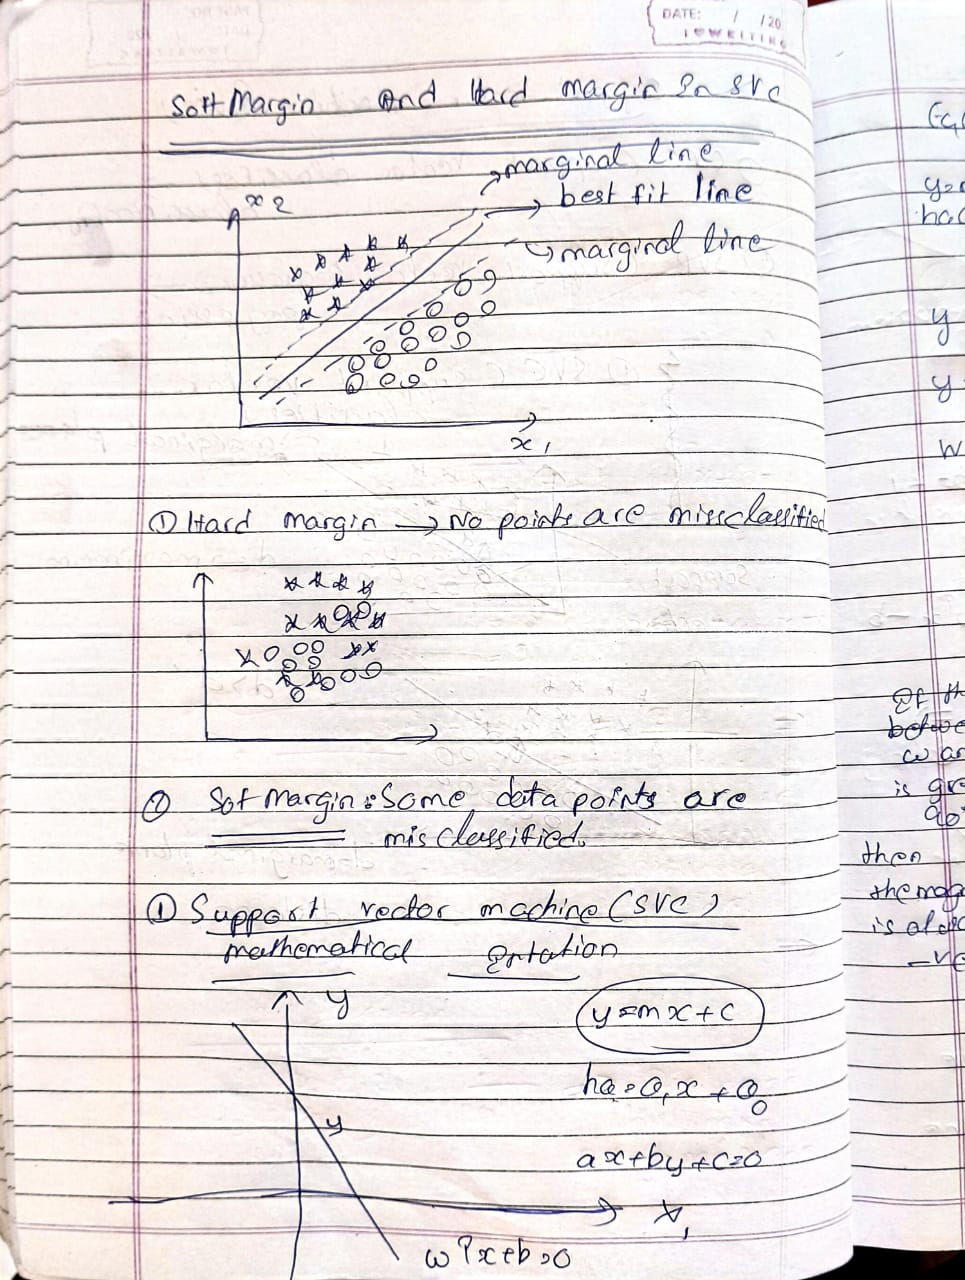 DATE: / /20
Soft Margin And Hard margin In SVC
marginal line
best fit line
marginal line
x2
x1
① Hard margin → No points are missclassified
② Sof margin: Some data points are
misclassified.
① Support vector machine (SVC)
mathematical Intation
y
y = mx + c
hθ = θ1x + θ0
y
ax+by+c=0
x1
wTx+b=0
y
y
w
If th
betwe
w an
is gre
90°
then
the mag
is also
-ve